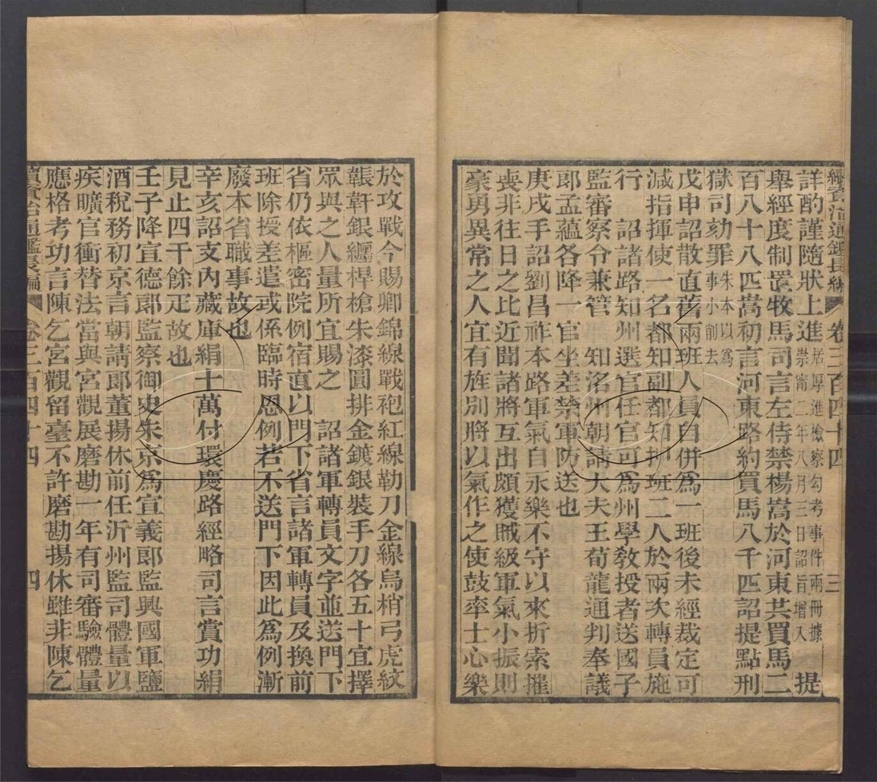 續資治通鑑長編 卷三百四十四 三
詳酌謹隨狀上進崇寧二年八月三日詔旨增入 提
舉經度制置牧馬司言左侍禁楊嵩於河東共買馬二
百八十八匹嵩初言河東路約買馬八千匹詔提點刑
獄司劾罪朱本以爲事小前去
戊申詔散直舊兩班人員自併爲一班後未經裁定可
減指揮使一名都知副都知押班二人於兩次轉員施
行 詔諸路知州選官任官可爲州學敎授者送國子
監審察令兼管 知洺州朝請大夫王荀龍通判奉議
郎孟蘊各降一官坐差禁軍防送也
庚戌手詔劉昌祚本路軍氣自永樂不守以來折索摧
喪非往日之比近聞諸將互出頗獲賊級軍氣小振則
豪勇異常之人宜有旌別將以氣作之使鼓率士心樂
於攻戰今賜卿錦線戰袍紅線勒刀金線烏梢弓虎紋
韔靬銀纏桿槍朱漆圓排金鍍銀裝手刀各五十宜擇
眾與之人量所宜賜之 詔諸軍轉員文字並送門下
省仍依樞密院例宿直以門下省言諸軍轉員及換前
班除授差遣或係臨時恩例若不送門下因此爲例漸
廢本省職事故也
辛亥詔支內藏庫絹十萬付環慶路經略司言賞功絹
見止四千餘疋故也
壬子降宣德郎監察御史朱京爲宣義郎監興國軍鹽
酒稅務初京言朝請郎董揚休前任沂州監司體量以
疾曠官衝替法當與宮觀展磨勘一年有司審驗體量
應格考功言陳乞宮觀留臺不許磨勘揚休雖非陳乞
續資治通鑑長編 卷三百四十四 四